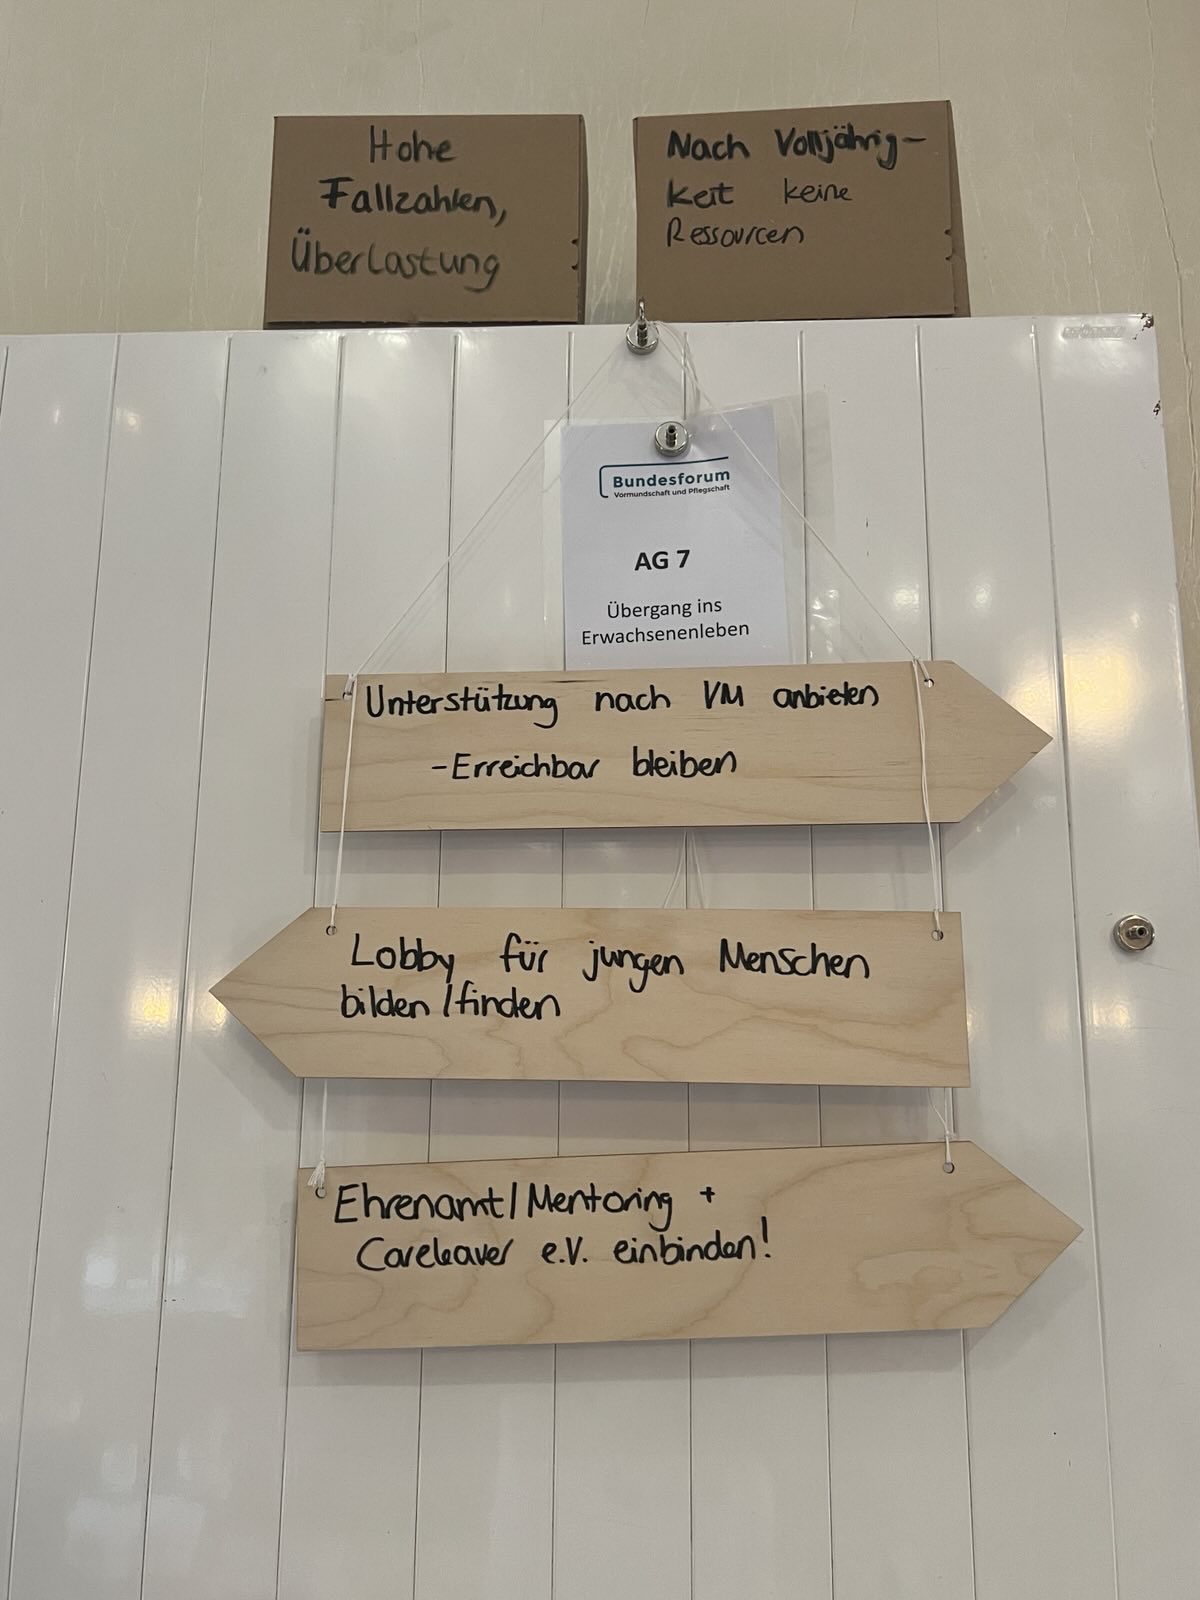 Hohe
Fallzahlen,
Überlastung
Nach Volljährig-
keit keine
Ressourcen
Bundesforum
Vormundschaft und Pflegschaft
AG 7
Übergang ins
Erwachsenenleben
Unterstützung nach VM anbieten
- Erreichbar bleiben
Lobby für jungen Menschen
bilden / finden
Ehrenamt / Mentoring +
Careleaver e.V. einbinden!